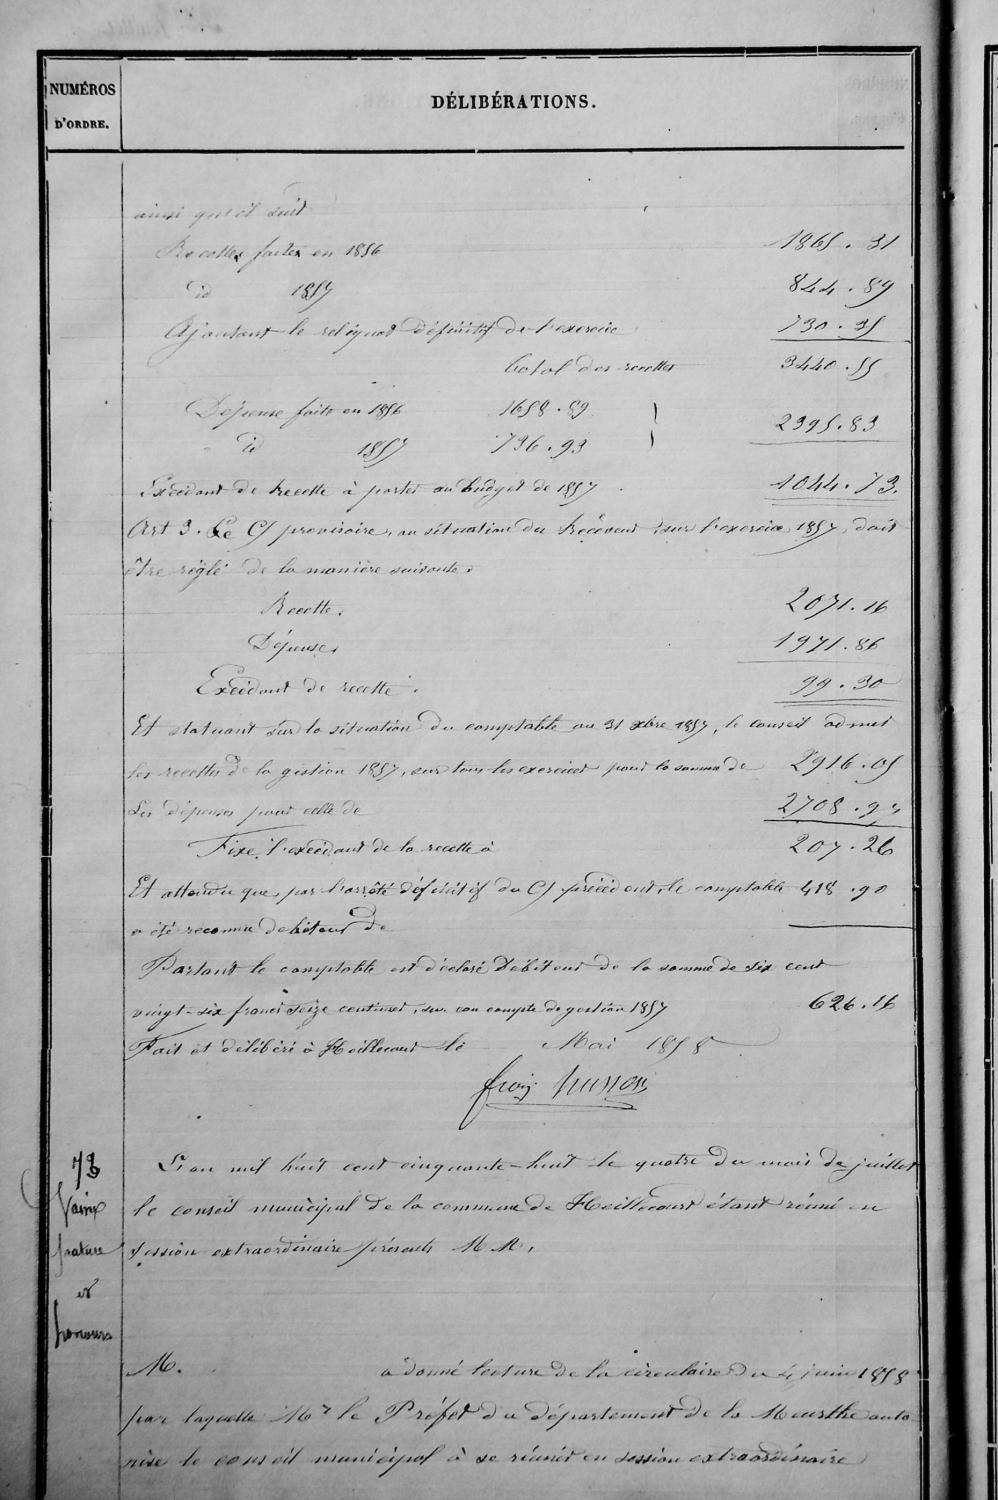 NUMÉROS
D'ORDRE.
DÉLIBÉRATIONS.
ainsi qu'il suit
Recettes faites en 1856 1865.31
id 1857 844.89
Ajoutant le reliquat définitif de l'exercice 730.35
Total des recettes 3440.55
Dépense faite en 1856 1658.89
id 1857 736.93
2395.83
Excédant de recette à porter au budget de 1857. 1044.73.
Art 3. Le C/ provisoire, ou situation du Receveur sur l'exercice 1857, doit
être réglé de la manière suivante.
Recette. 2071.16
Dépense. 1971.86
Excédant de recette. 99.30
Et statuant sur la situation du comptable au 31 xbre 1857, le conseil admet
les recettes de la gestion 1857, sur tous les exercices pour la somme de 2916.05
Les dépenses pour celle de 2708.
Fixe l'excédant de la recette à 207.26
Et attendu que, par l'arrêté définitif du C/ précédent, le comptable 418.90
a été reconnu débiteur de
Partant le comptable est déclaré débiteur de la somme de six cent
vingt-six francs seize centimes, sur son compte de gestion 1857 626.16
Fait et délibéré à Hoéllecourt le Mai 1858
franç husson
73
Vaine
pature
et
L'an mil huit cent cinquante-huit le quatre du mois de juillet
le conseil municipal de la commune de Hoéllecourt étant réuni en
session extraordinaire présents MM.
M. a donné lecture de la circulaire du 4 juin 1858
par laquelle Mr le Préfet du département de la Meurthe auto
rise le conseil municipal à se réunir en session extraordinaire